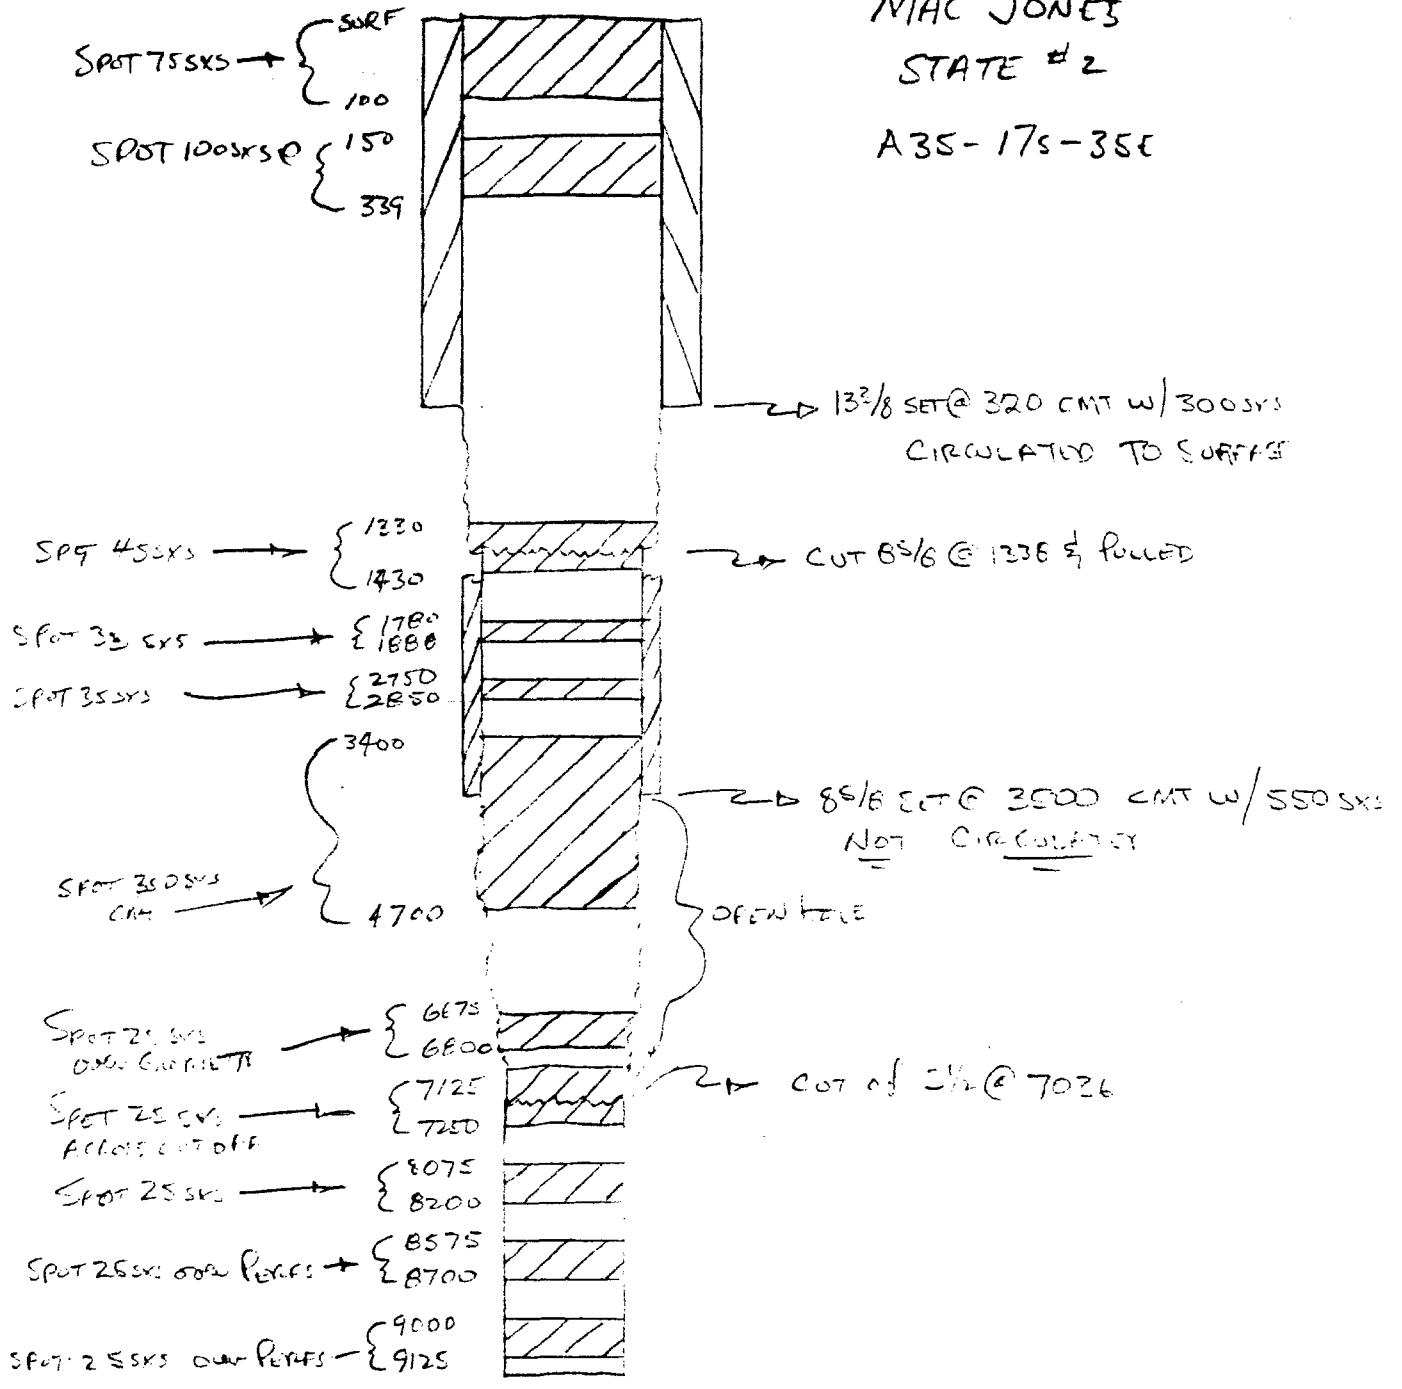 MAC JONES
STATE # 2
A35-17S-35E
SURF
SPOT 75 SXS
100
SPOT 100 SXS @
150
339
13 3/8 SET @ 320 CMT W/ 300 SXS
CIRCULATED TO SURFACE
1330
SPOT 45 SXS
1430
CUT 8 5/8 @ 1338 & PULLED
SPOT SXS
1780
1888
SPOT 35 SXS
2750
2850
3400
8 5/8 SET @ 3500 CMT W/ 550 SXS
NOT CIRCULATED
SPOT 350 SXS
4700
OPEN HOLE
SPOT 25 SXS
OVER
6675
6800
7125
CUT of @
SPOT 25 SXS
7250
ACROSS CUT OFF
8075
SPOT 25 SXS
8200
8575
SPOT 25 SXS OVER PERFS
8700
9000
SPOT 25 SXS OVER PERFS
9125